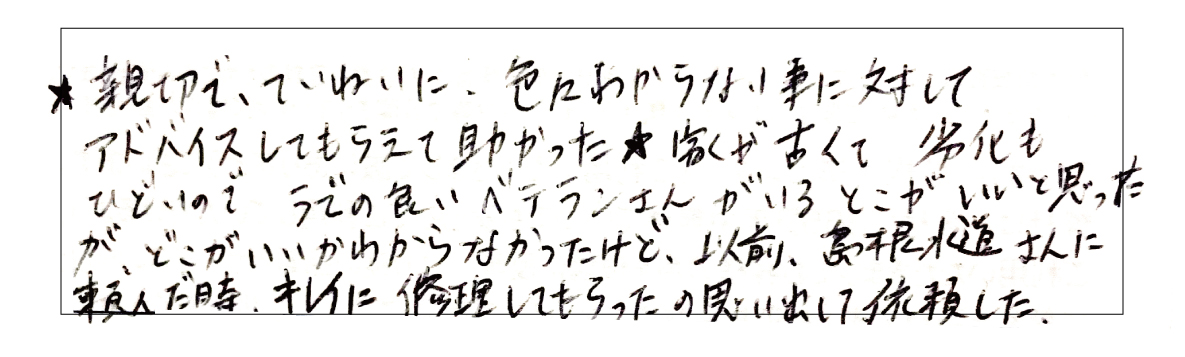 ★親切で、ていねいに、色々わからない事に対して
アドバイスしてもらえて助かった★家が古くて 劣化も
ひどいので うでの良いベテランさんがいるとこがいいと思った
が、どこがいいかわからなかったけど、以前、島根水道さんに
頼んだ時、キレイに修理してもらったの思い出して依頼した。